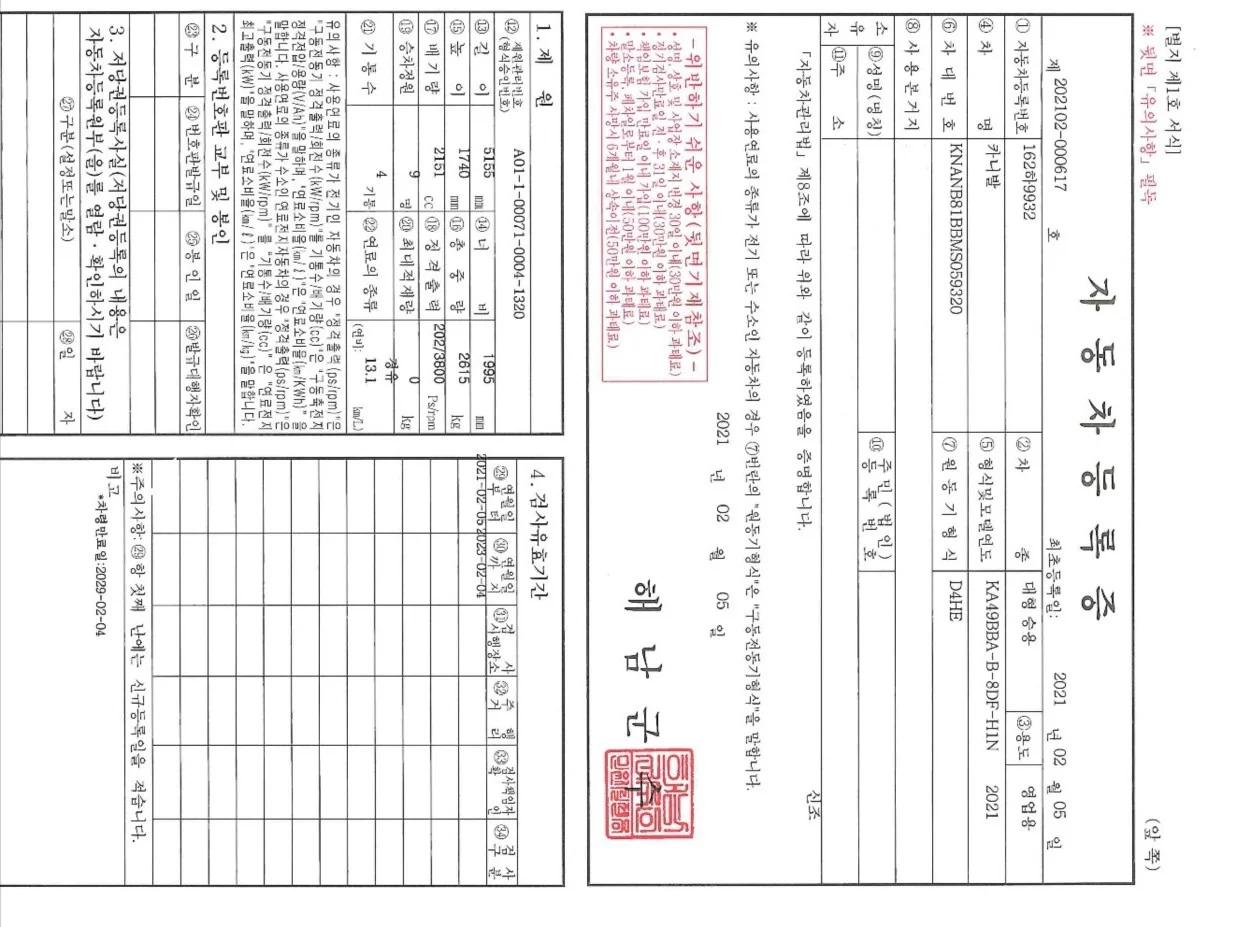 [별지 제1호 서식]
※ 뒷면「유의사항」필독
(앞 쪽)
자 동 차 등 록 증
제 202102-000617 호
최초등록일: 2021 년 02 월 05 일
① 자동차등록번호 162하9932 ② 차 종 대형 승용 ③용도 영업용
④ 차 명 카니발 ⑤ 형식및모델연도 KA49BBA-B-8DF-H1N 2021
⑥ 차 대 번 호 KNANB81BBMS059320 ⑦ 원 동 기 형 식 D4HE
⑧ 사 용 본 거 지
소 유 자
⑨성명(명칭) ⑩ 주민(법인) 등록번호
⑪주 소
「자동차관리법」제8조에 따라 위와 같이 등록하였음을 증명합니다.
신조
※ 유의사항 : 사용연료의 종류가 전기 또는 수소인 자동차의 경우 ⑦번란의 "원동기형식"은 "구동전동기형식"을 말합니다.
2021 년 02 월 05 일
- 위반하기 쉬운 사항(뒷면기재참조) -
• 성명, 상호 및 사업장 소재지 변경 30일 이내(30만원 이하 과태료)
• 정기검사만료일 전·후 31일 이내(30만원 이하 과태료)
• 책임보험 가입 만료일 이내 가입(100만원 이하 과태료)
• 말소등록, 폐차일로부터 1월 이내(50만원 이하 과태료)
• 차량 소유주 사망시 6개월내 상속이전(50만원 이하 과태료)
해 남 군 수
1. 제 원
⑫ 제원관리번호 (형식승인번호) A01-1-00071-0004-1320
⑬ 길 이 5155 mm ⑭ 너 비 1995 mm
⑮ 높 이 1740 mm ⑯ 총 중 량 2615 kg
⑰ 배 기 량 2151 cc ⑱ 정 격 출 력 202/3800 Ps/rpm
⑲ 승차정원 9 명 ⑳ 최대적재량 0 kg
㉑ 기 통 수 4 기통 ㉒ 연료의 종류 경유
(연비: 13.1 km/L)
유의사항 : 사용연료의 종류가 전기인 자동차의 경우 "정격출력(ps/rpm)"은
"구동전동기 정격출력/회전수(kW/rpm)"를 기통수/배기량(cc)"은 "구동축전지
정격전압/용량(V/Ah)"을말하며, "연료소비율(㎞/ℓ)"은 "연료소비율(㎞/KWh)" 을
말합니다. 사용연료의 종류가 수소인 연료전지자동차의 경우 "정격출력(ps/rpm)"은
"구동전동기 정격출력/회전수(kW/rpm)" 를 "기통수/배기량(cc)" 은 "연료전지
최고출력(kW)"을 말하며, "연료소비율(㎞/ℓ)" 은 "연료소비율(㎞/kg)"을 말합니다.
2. 등록번호판 교부 및 봉인
㉓ 구 분 ㉔ 번호판발급일 ㉕ 봉 인 일 ㉖발급대행자확인
3. 저당권등록사실(저당권등록의 내용은
자동차등록원부(을)를 열람 · 확인하시기 바랍니다)
㉗ 구분(설정또는말소) ㉘ 일 자
4. 검사유효기간
㉙ 연월일 부터 ㉚ 연월일 까지 ㉛ 검 사 시행장소 ㉜ 주 행 거 리 ㉝ 검사책임자 확 인 ㉞ 검 사 구 분
2021-02-05 2023-02-04
※주의사항: ㉙항 첫째 난에는 신규등록일을 적습니다.
비고
*차령만료일:2029-02-04